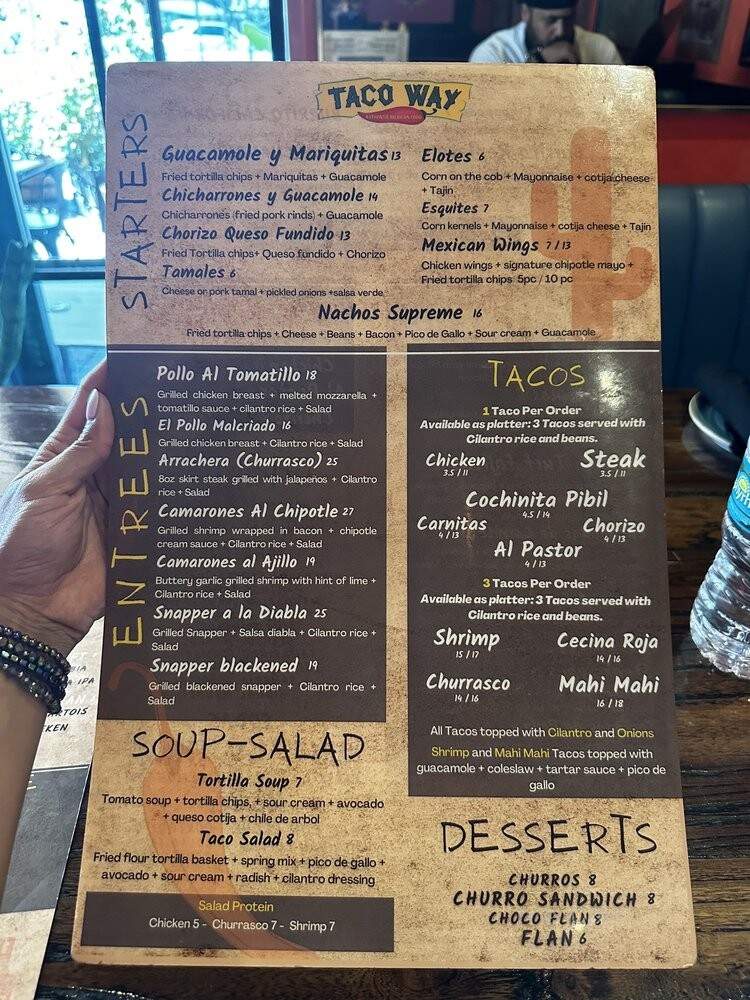 TACO WAY
AUTHENTIC MEXICAN FOOD
STARTERS
Guacamole y Mariquitas 13
Fried tortilla chips + Mariquitas + Guacamole
Chicharrones y Guacamole 14
Chicharrones (fried pork rinds) + Guacamole
Chorizo Queso Fundido 13
Fried Tortilla chips+ Queso fundido + Chorizo
Tamales 6
Cheese or pork tamal + pickled onions +salsa verde
Elotes 6
Corn on the cob + Mayonnaise + cotija cheese
+ Tajin
Esquites 7
Corn kernels + Mayonnaise + cotija cheese + Tajin
Mexican Wings 7 / 13
Chicken wings + signature chipotle mayo +
Fried tortilla chips 5pc / 10 pc
Nachos Supreme 16
Fried tortilla chips + Cheese + Beans + Bacon + Pico de Gallo + Sour cream + Guacamole
ENTREES
Pollo Al Tomatillo 18
Grilled chicken breast + melted mozzarella +
tomatillo sauce + cilantro rice + Salad
El Pollo Malcriado 16
Grilled chicken breast + Cilantro rice + Salad
Arrachera (Churrasco) 25
8oz skirt steak grilled with jalapeños + Cilantro
rice + Salad
Camarones Al Chipotle 27
Grilled shrimp wrapped in bacon + chipotle
cream sauce + Cilantro rice + Salad
Camarones al Ajillo 19
Buttery garlic grilled shrimp with hint of lime +
Cilantro rice + Salad
Snapper a la Diabla 25
Grilled Snapper + Salsa diabla + Cilantro rice +
Salad
Snapper blackened 19
Grilled blackened snapper + Cilantro rice +
Salad
TACOS
1 Taco Per Order
Available as platter: 3 Tacos served with
Cilantro rice and beans.
Chicken
3.5 / 11
Steak
3.5 / 11
Cochinita Pibil
4.5 / 14
Carnitas
4 / 13
Chorizo
4 / 13
Al Pastor
4 / 13
3 Tacos Per Order
Available as platter: 3 Tacos served with
Cilantro rice and beans.
Shrimp
15 / 17
Cecina Roja
14 / 16
Churrasco
14 / 16
Mahi Mahi
16 / 18
All Tacos topped with Cilantro and Onions
Shrimp and Mahi Mahi Tacos topped with
guacamole + coleslaw + tartar sauce + pico de
gallo
SOUP-SALAD
Tortilla Soup 7
Tomato soup + tortilla chips, + sour cream + avocado
+ queso cotija + chile de arbol
Taco Salad 8
Fried flour tortilla basket + spring mix + pico de gallo +
avocado + sour cream + radish + cilantro dressing
Salad Protein
Chicken 5 - Churrasco 7 - Shrimp 7
DESSERTS
CHURROS 8
CHURRO SANDWICH 8
CHOCO FLAN 8
FLAN 6
IPA